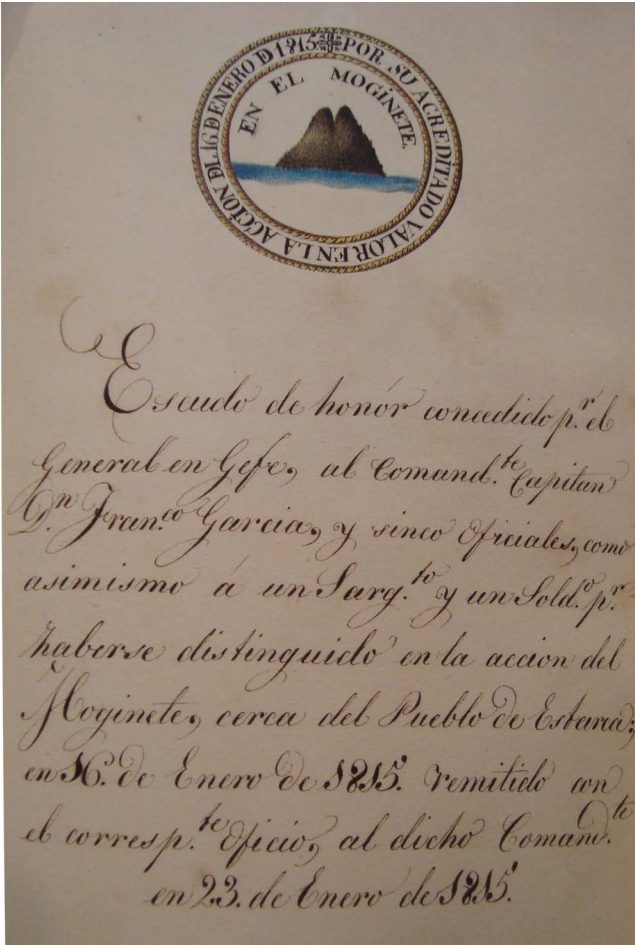 POR SU ACREDITADO VALOR EN LA ACCION DL 16. D ENERO D 1815
EN EL MOGINETE.
Escudo de honór concedido p.r el
General en Gefe, al Comand.te Capitan
D.n Fran.co Garcia, y sinco Oficiales, como
asimismo á un Sarg.to y un Sold.o p.r
haberse distinguido en la accion del
Moginete, cerca del Pueblo de
en 16. de Enero de 1815. remitido con
el corresp.te Oficio, al dicho Comand.te
en 23. de Enero de 1815.